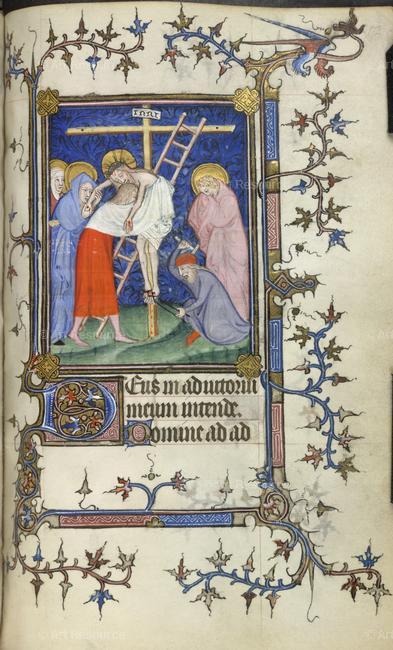 INRI
Deus in adiutoriu
meum intende.
Domine ad ad
© Art Resource